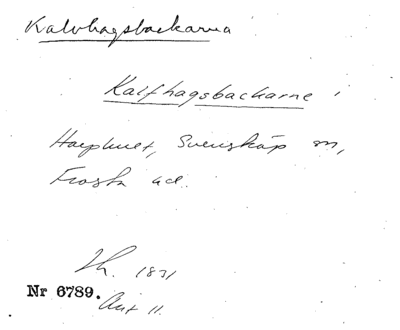 Kalvhagsbackarna
Kalfhagsbackarne
Svensköp sn,
Frosta hd.
1831
Nr 6789.
Akt 11.